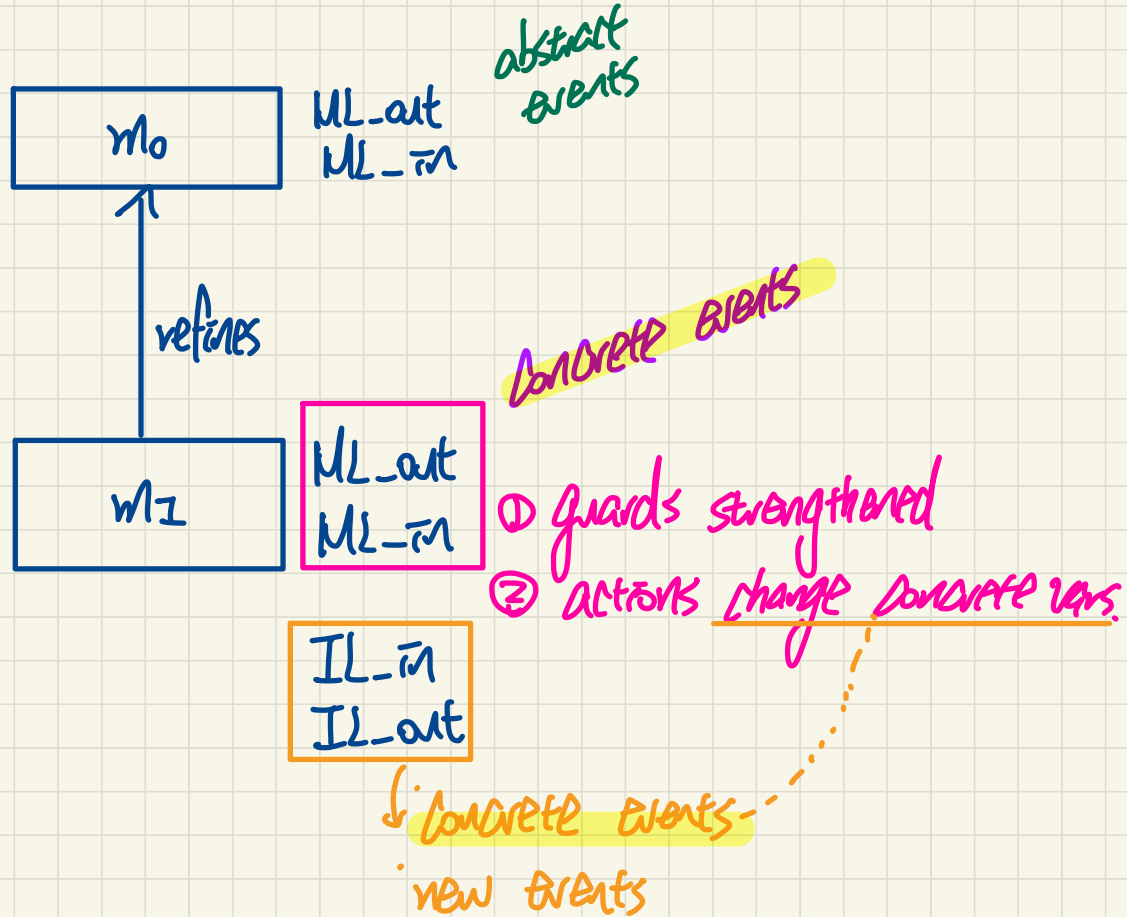 abstract
events
m0
ML_out
ML_in
refines
concrete events
m1
ML_out
ML_in
① guards strengthened
② actions change concrete vars.
IL_in
IL_out
· concrete events
· new events